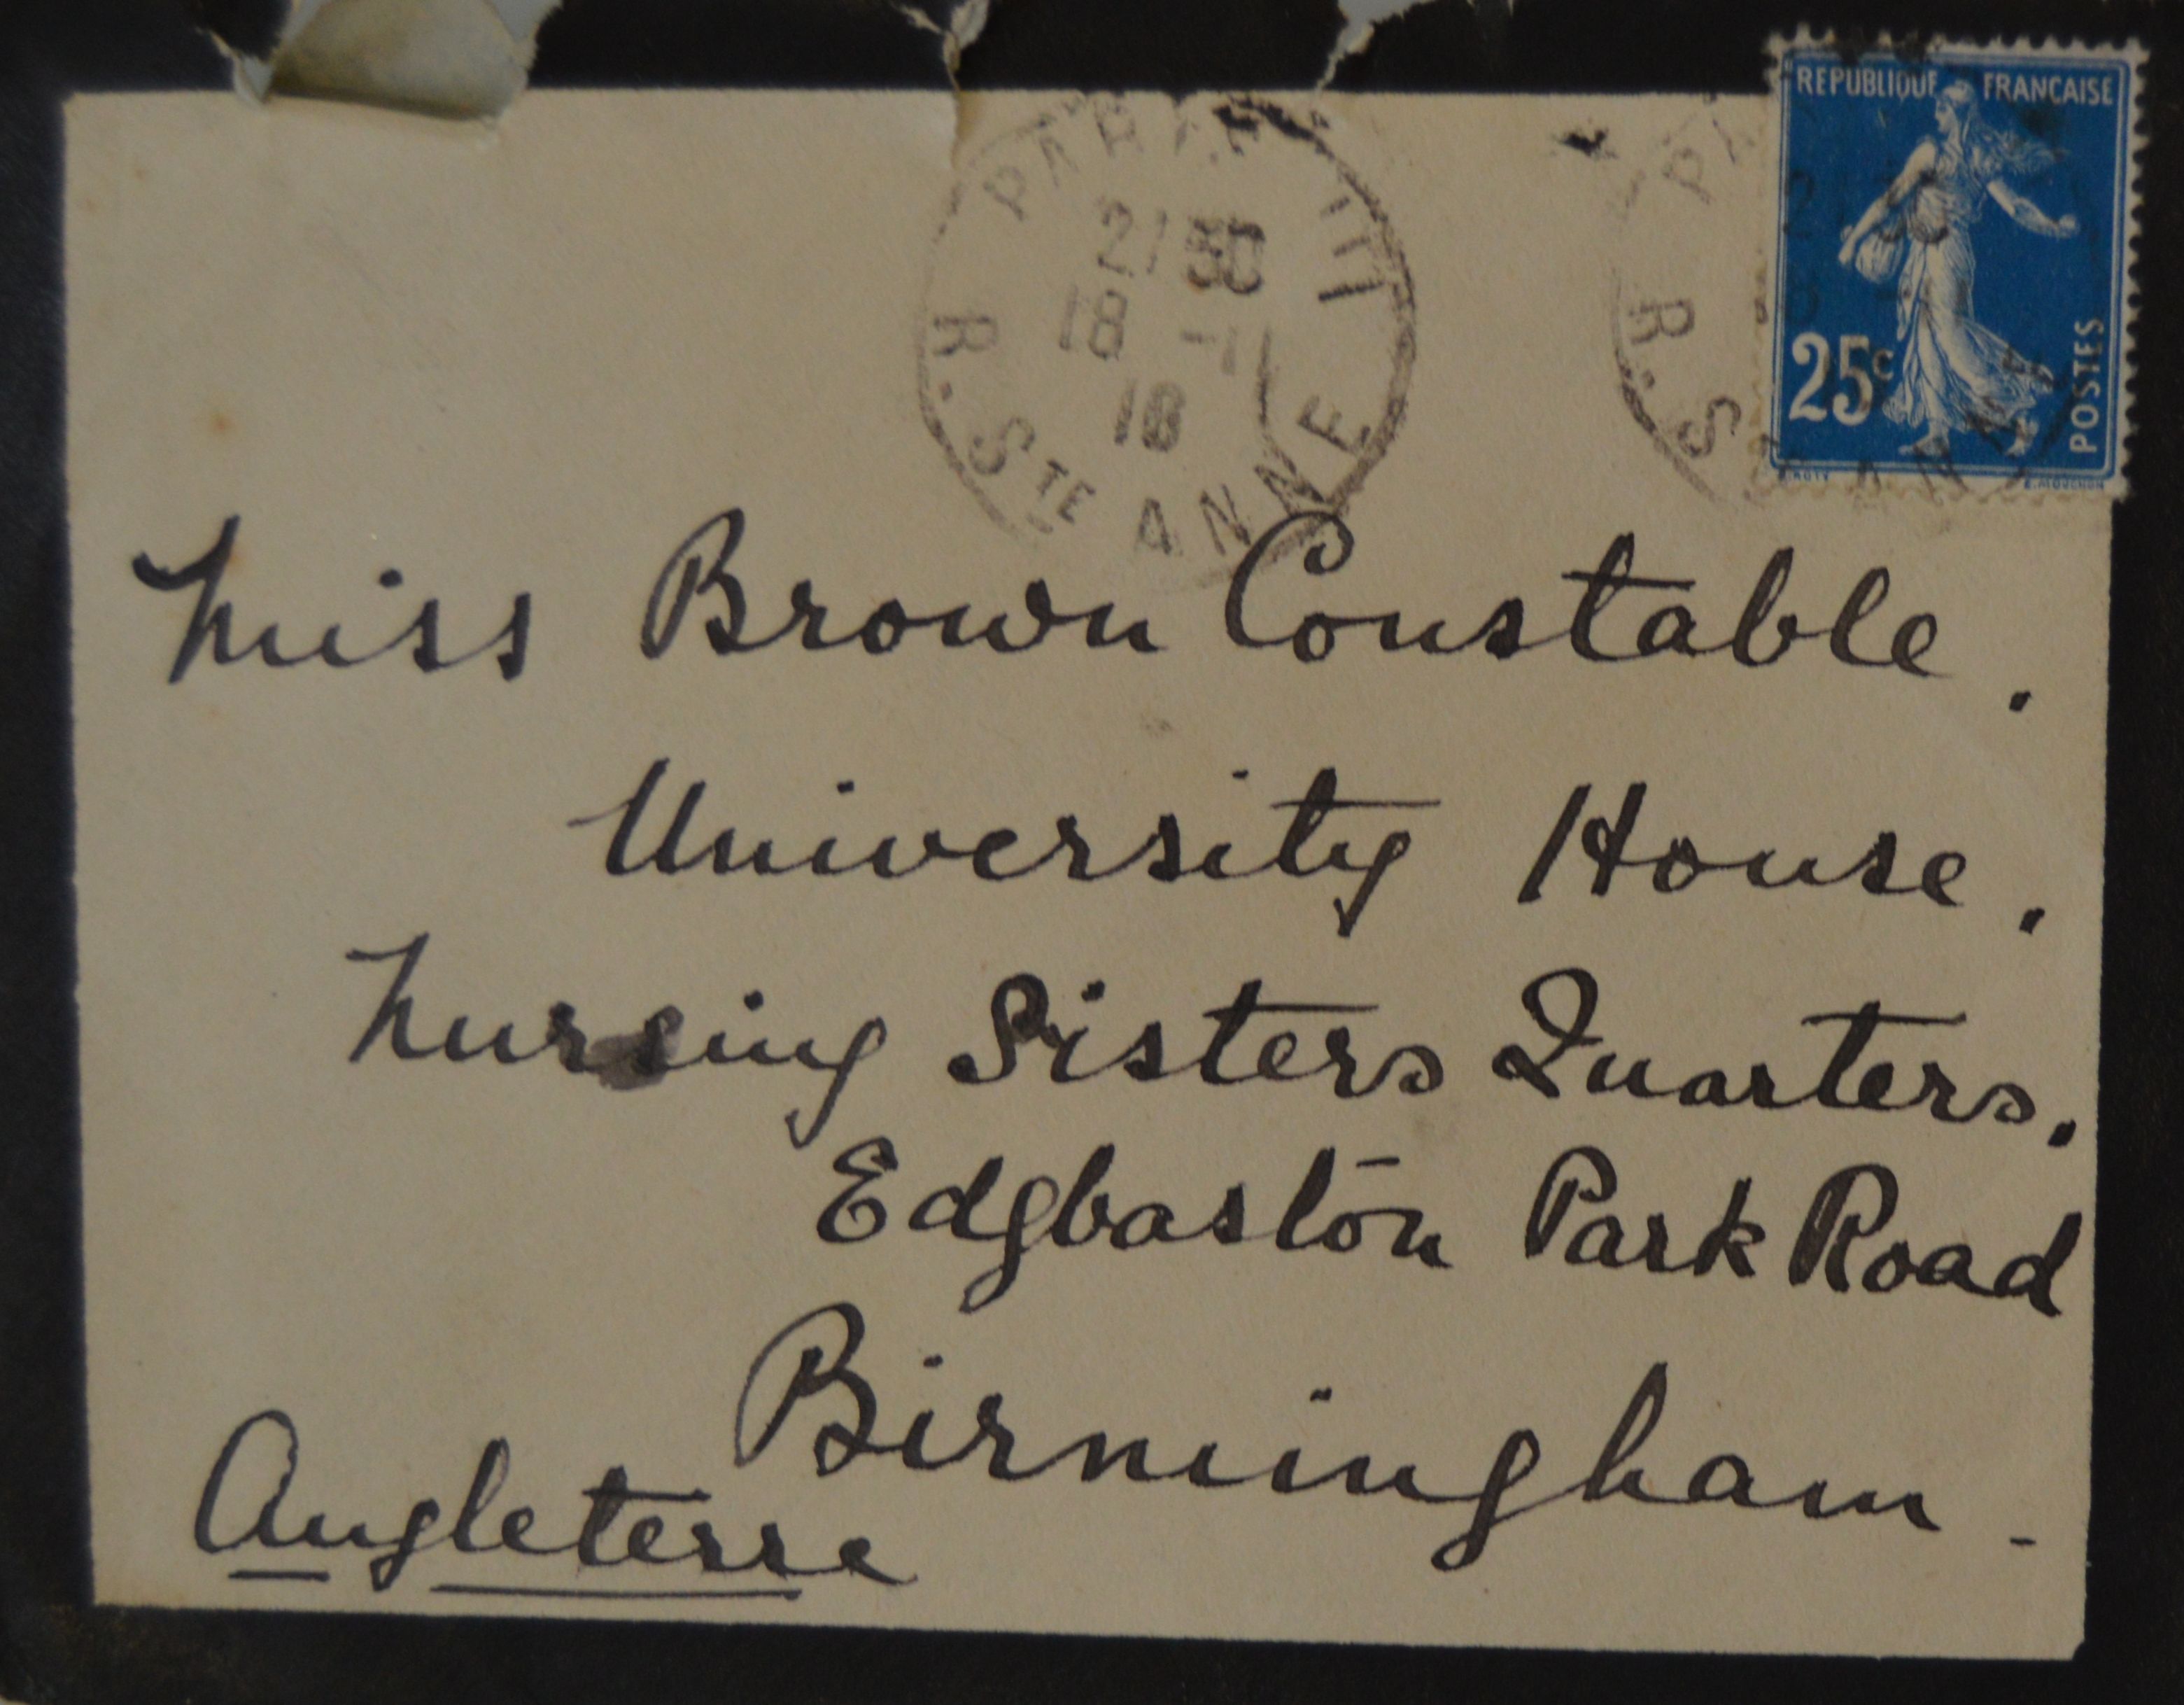 REPUBLIQUE FRANCAISE
25c
POSTES
PARIS III
21 30
18 -11
18
R. STE ANNE
R. STE ANNE
Miss Brown Constable.
University House.
Nursing Sisters Quarters.
Edgbaston Park Road
Birmingham -
Angleterre